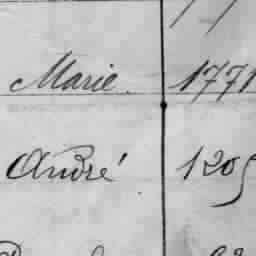 Marie. 1771
André 1205